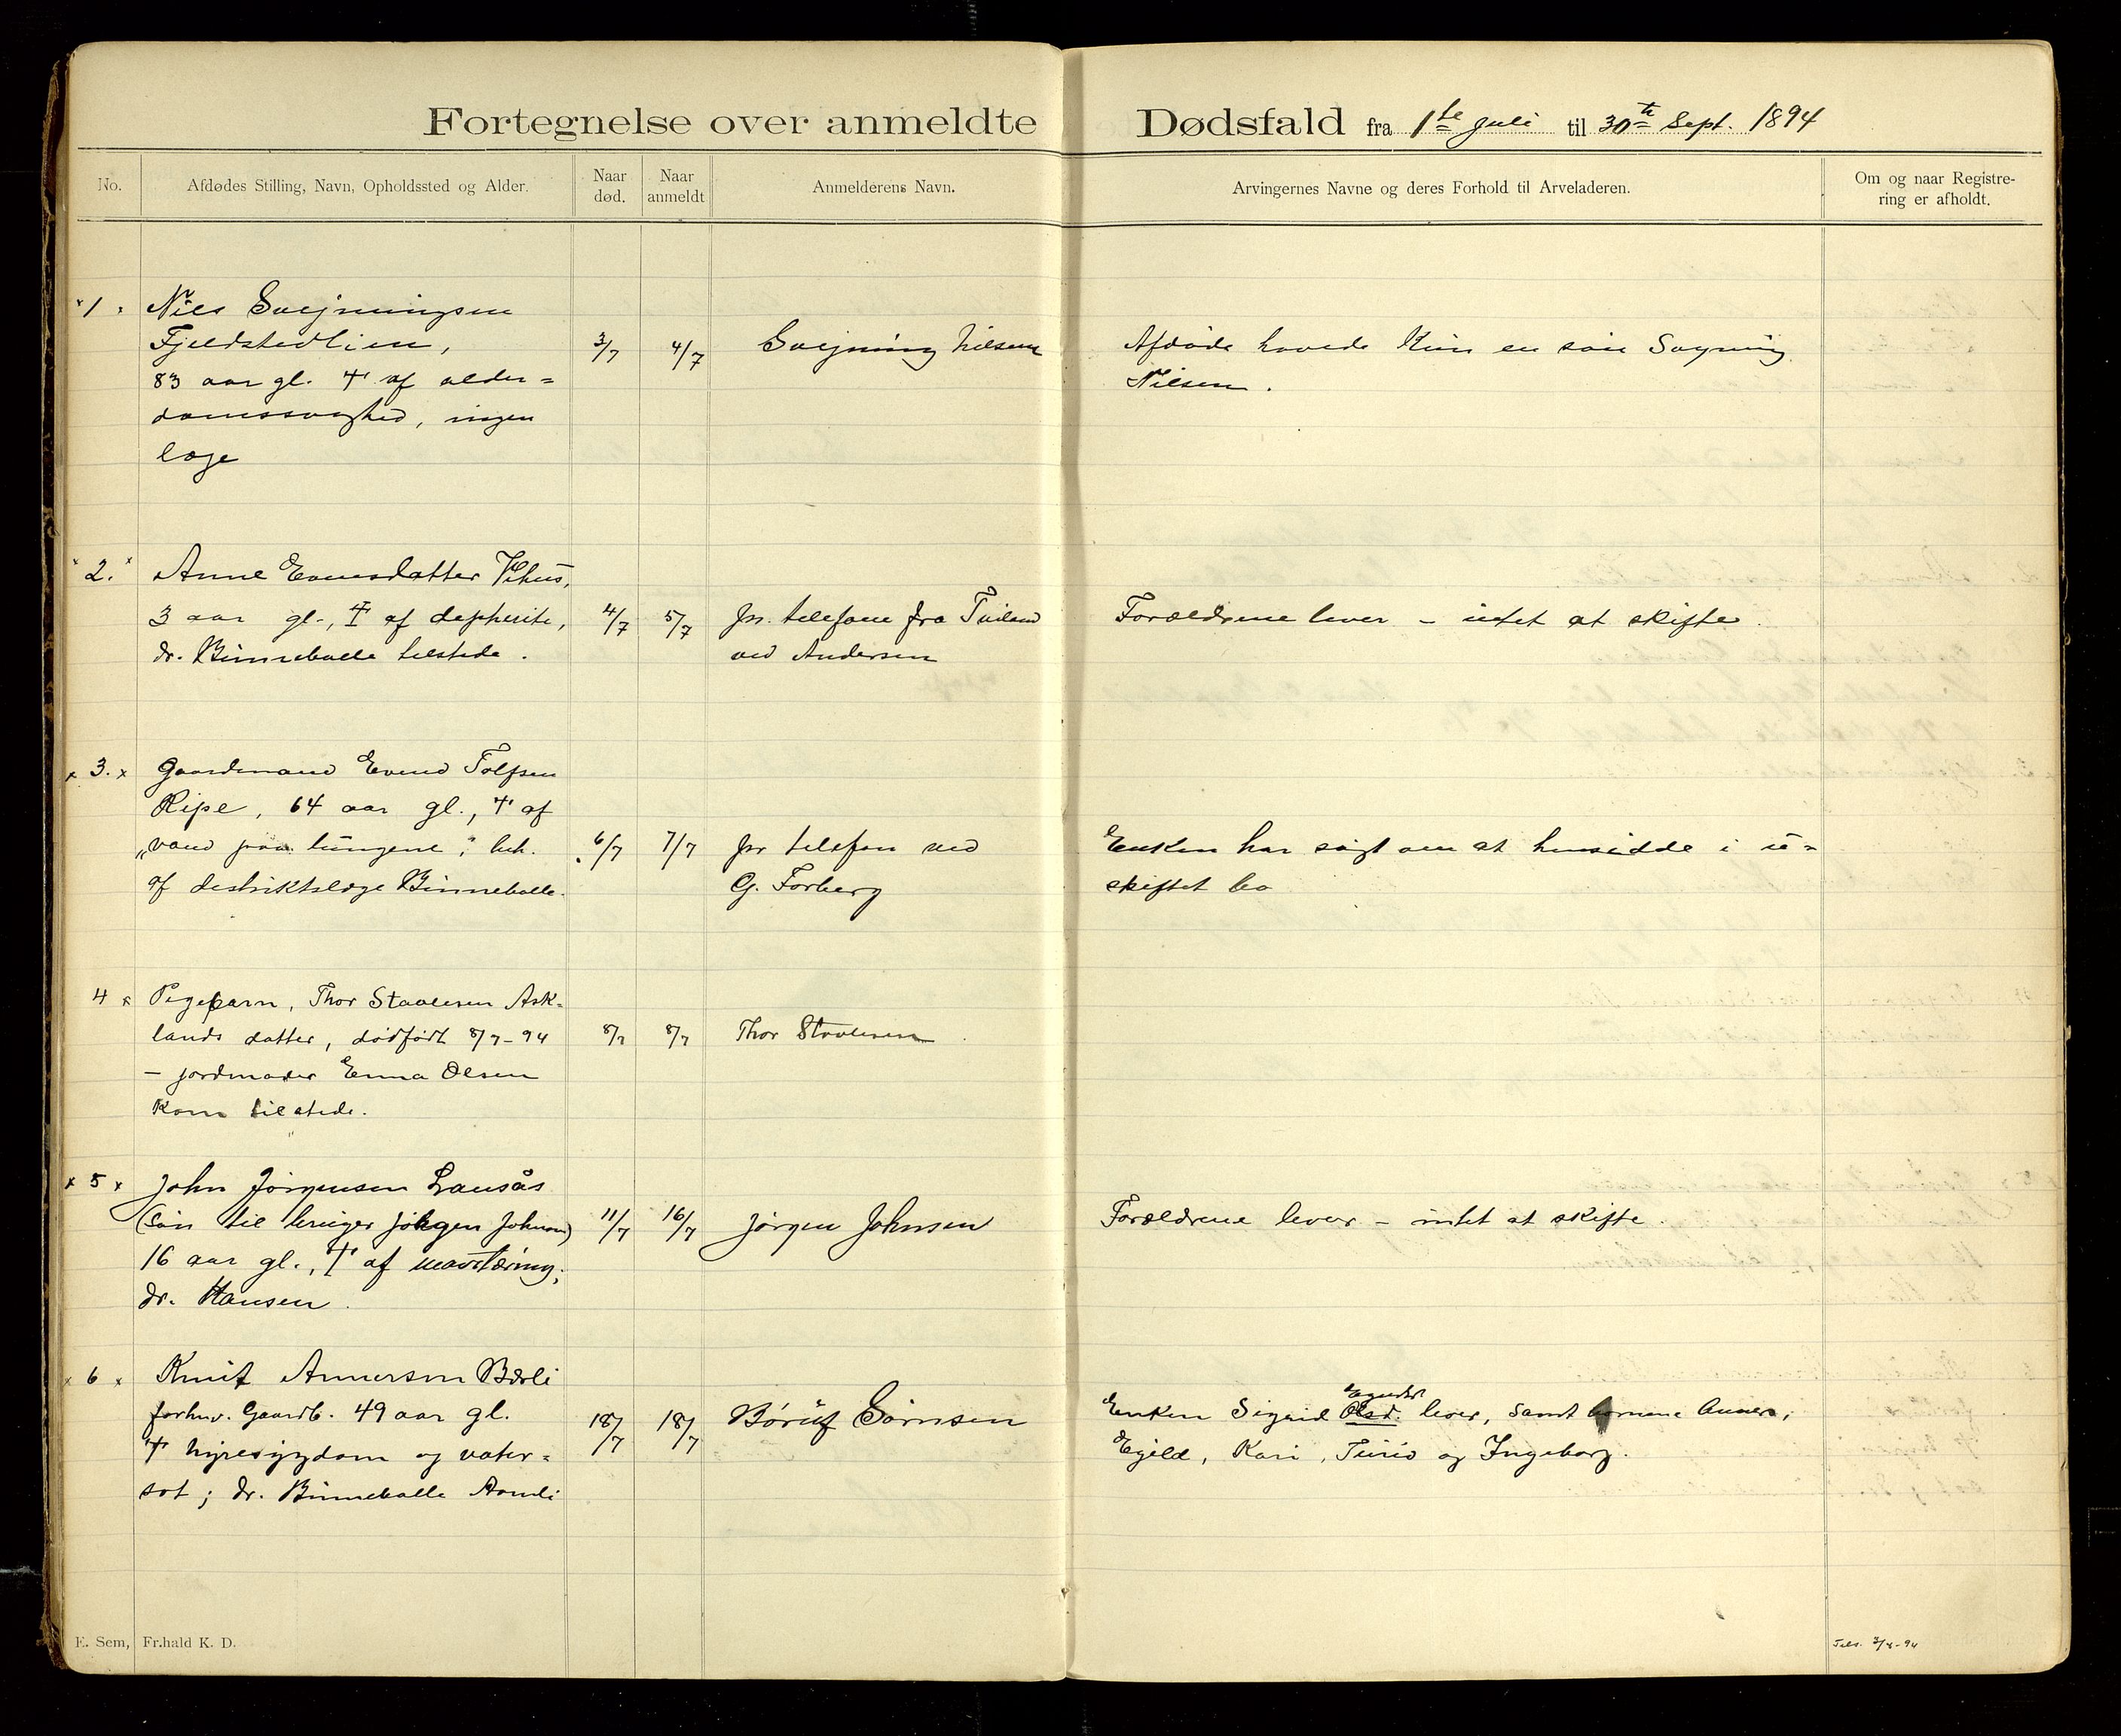 Fortegnelse over anmeldte Dødsfald fra 1te Juli til 30th Sept. 1894
No.
Afdødes Stilling, Navn, Opholdssted og Alder.
Naar død.
Naar anmeldt
Anmelderens Navn.
Arvingernes Navne og deres Forhold til Arveladeren.
Om og naar Registre-
ring er afholdt.
1.
Niels Svejningsen
Fjeldstedlien,
83 aar gl. † af alder=
domssvaghed, ingen
læge
3/7
4/7
Svejning Nilsen
Afdøde havde kun en søn Svejning
Nilsen.
2.
Anne Evensdatter Vehus,
3 aar gl., † af depherite,
dr. Binneballe tilstede.
4/7
5/7
pr. telefone fra
ved Andersen
Forældrene lever – intet at skifte.
3.
Gaardmand Evend Tolfsen
Ripe, 64 aar gl., † af
„vand paa lungene", beh.
af destriktslæge Binneballe.
6/7
7/7
pr telefon ved
G. Forberg
Enken har søgt om at hensidde i u=
skiftet bo
4
Pigebarn, Thor Staalesen Ask=
lands datter, dødfødt 8/7-94
– jordmoder Emma Olsen
kom tilstede.
8/7
8/7
Thor Staalesen
5
John Jørgensen Lausås
(søn til bruger Jørgen Johnsen)
16 aar gl., † af mavetæring;
dr. Hansen.
11/7
16/7
Jørgen Johnsen
Forældrene lever – intet at skifte.
6
Knut Annersen Bærli
forhv. Gaardb. 49 aar gl.
† nyresygdom og vater=
sot; dr. Binneballe Aamli
18/7
18/7
Børuf Sørnsen
Enken Sigrid Olsd. lever, samt børnene Anners,
Egild, Kari, Turid og Ingeborg.
E. Sem, Fr.hald K. D.